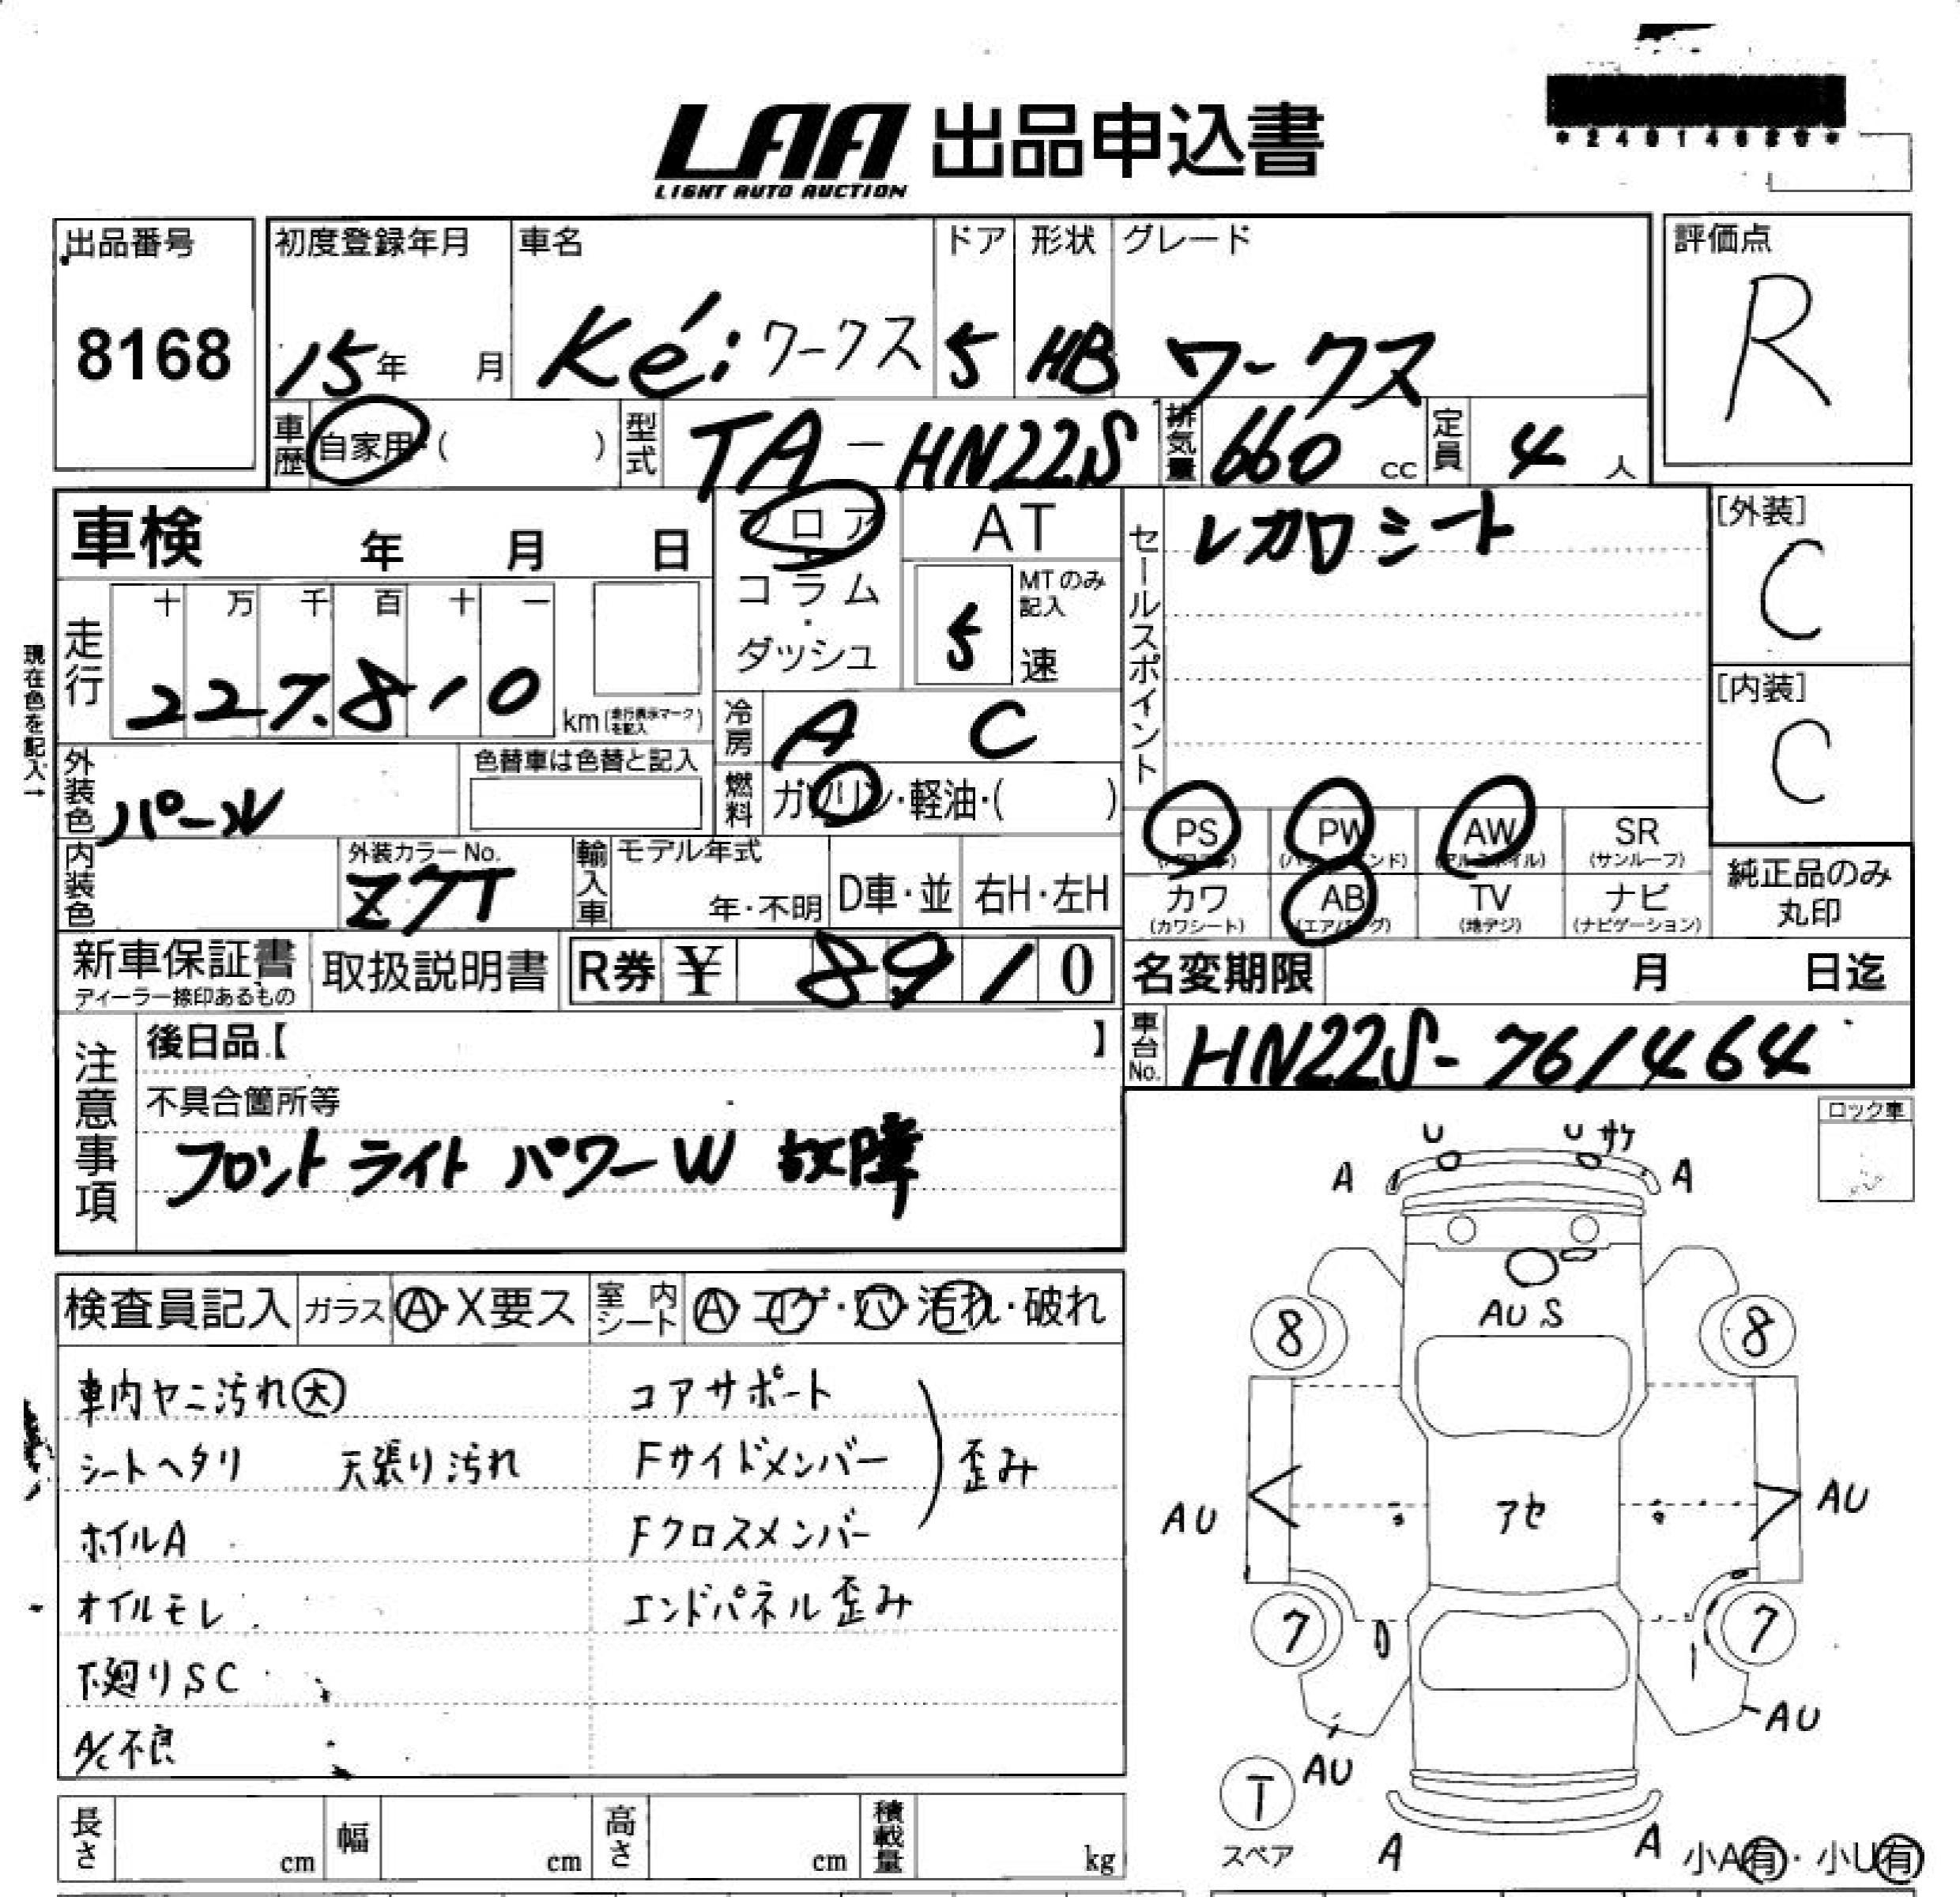 LAA 出品申込書
LIGHT AUTO AUCTION
*24014620*
出品番号
8168
初度登録年月
15年 月
車名
Kei ワークス
ドア
5
形状
HB
グレード
ワークス
評価点
R
車歴 自家用・( )
型式 TA-HN22S
排気量 660 cc
定員 4 人
車検 年 月 日
フロア・コラム・ダッシュ
AT
MTのみ記入
5 速
セールスポイント
レカロシート
[外装]
C
[内装]
C
現在色を記入→
走行
十 万 千 百 十 一
227,810 km(走行表示マークを記入)
冷房 A C
燃料 ガソリン・軽油・( )
外装色 パール
色替車は色替と記入
内装色
外装カラーNo.
Z7T
輸入車
モデル年式
年・不明
D車・並
右H・左H
PS
PW
AW (アルミホイル)
SR (サンルーフ)
カワ (カワシート)
AB (エアバッグ)
TV (地デジ)
ナビ (ナビゲーション)
純正品のみ
丸印
新車保証書
ディーラー捺印あるもの
取扱説明書
R券 ¥ 8910
名変期限 月 日迄
車台No. HN22S-761464
注意事項
後日品【 】
不具合箇所等
フロントライト パワーW 故障
ロック車
検査員記入
ガラス A・X要ス
室内シート A・コゲ・穴・汚れ・破れ
車内ヤニ汚れ大
シートヘタリ 天張り汚れ
ホイルA
オイルモレ
下廻りSC
A/C不良
コアサポート
Fサイドメンバー
Fクロスメンバー
歪み
エンドパネル歪み
U U サケ
A A
AU S
8 8
AU アセ AU
7 7
AU AU
T
スペア
A A
小A有・小U有
長さ cm
幅 cm
高さ cm
積載量 kg